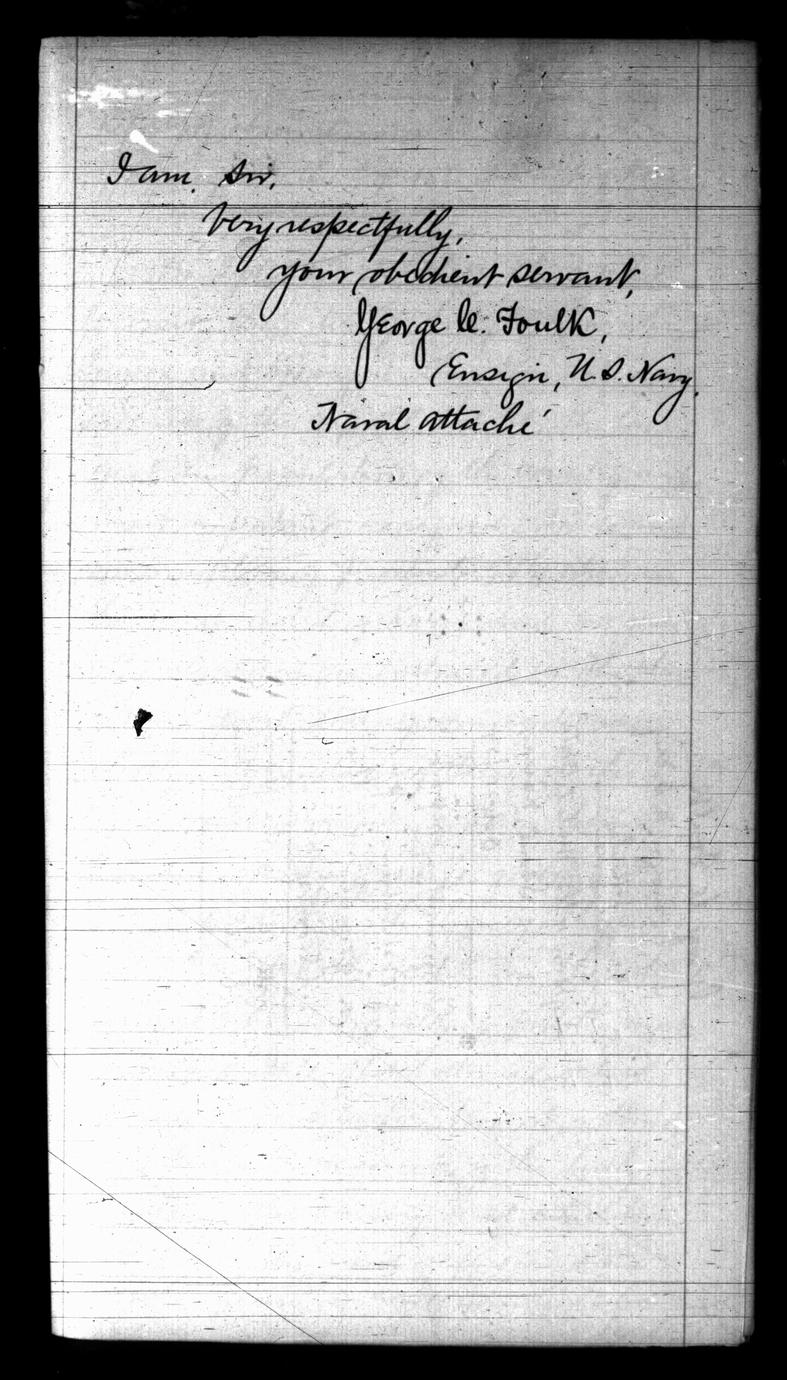 I am, Sir,
Very respectfully,
your obedient servant,
George C. Foulk,
Ensign, U.S. Navy.
Naval attaché